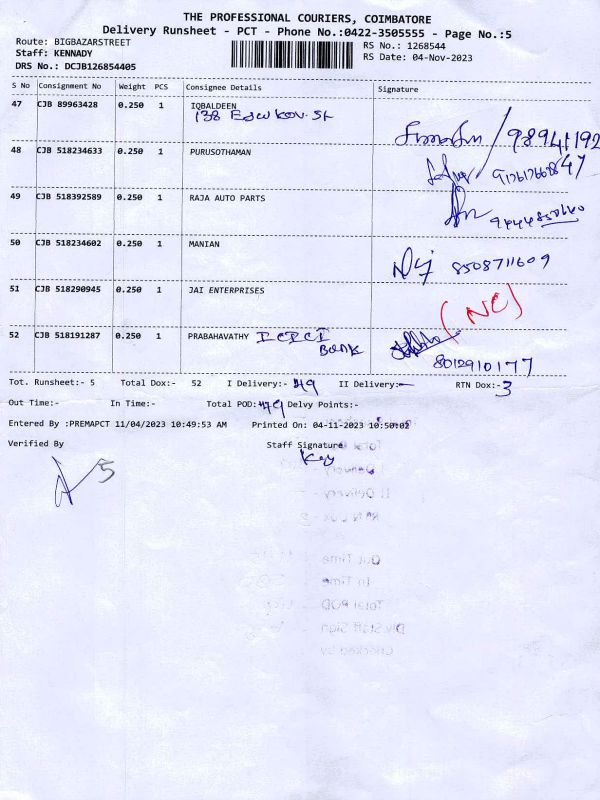 THE PROFESSIONAL COURIERS, COIMBATORE
Delivery Runsheet - PCT - Phone No.:0422-3505555 - Page No.:5
Route: BIGBAZARSTREET
Staff: KENNADY
DRS No.: DCJB126854405
RS No.: 1268544
RS Date: 04-Nov-2023
S No Consignment No Weight PCS Consignee Details Signature
47 CJB 89963428 0.250 1 IQBALDEEN
138
98941192
48 CJB 518234633 0.250 1 PURUSOTHAMAN
49 CJB 518392589 0.250 1 RAJA AUTO PARTS
50 CJB 518234602 0.250 1 MANIAN
8508711609
51 CJB 518290945 0.250 1 JAI ENTERPRISES
(NC)
52 CJB 518191287 0.250 1 PRABAHAVATHY ICICI
Bank
8012910177
Tot. Runsheet:- 5 Total Dox:- 52 I Delivery:- 49 II Delivery:- RTN Dox:-3
Out Time:- In Time:- Total POD:49 Delvy Points:-
Entered By :PREMAPCT 11/04/2023 10:49:53 AM Printed On: 04-11-2023 10:50:02
Verified By Staff Signature
5